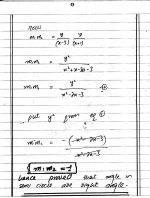 now
m₁ m₂ = y/(x-3) y/(x+1)
m₁m₂ = y²/(x²+x-3x-3)
m₁m₂ = y²/(x²-2x-3)
put y² from eq ①
m₁m₂ = -(x²-2x-3)/(x²-2x-3)
m₁m₂ = -1
hence proved that angle in
semi circle are right angle.